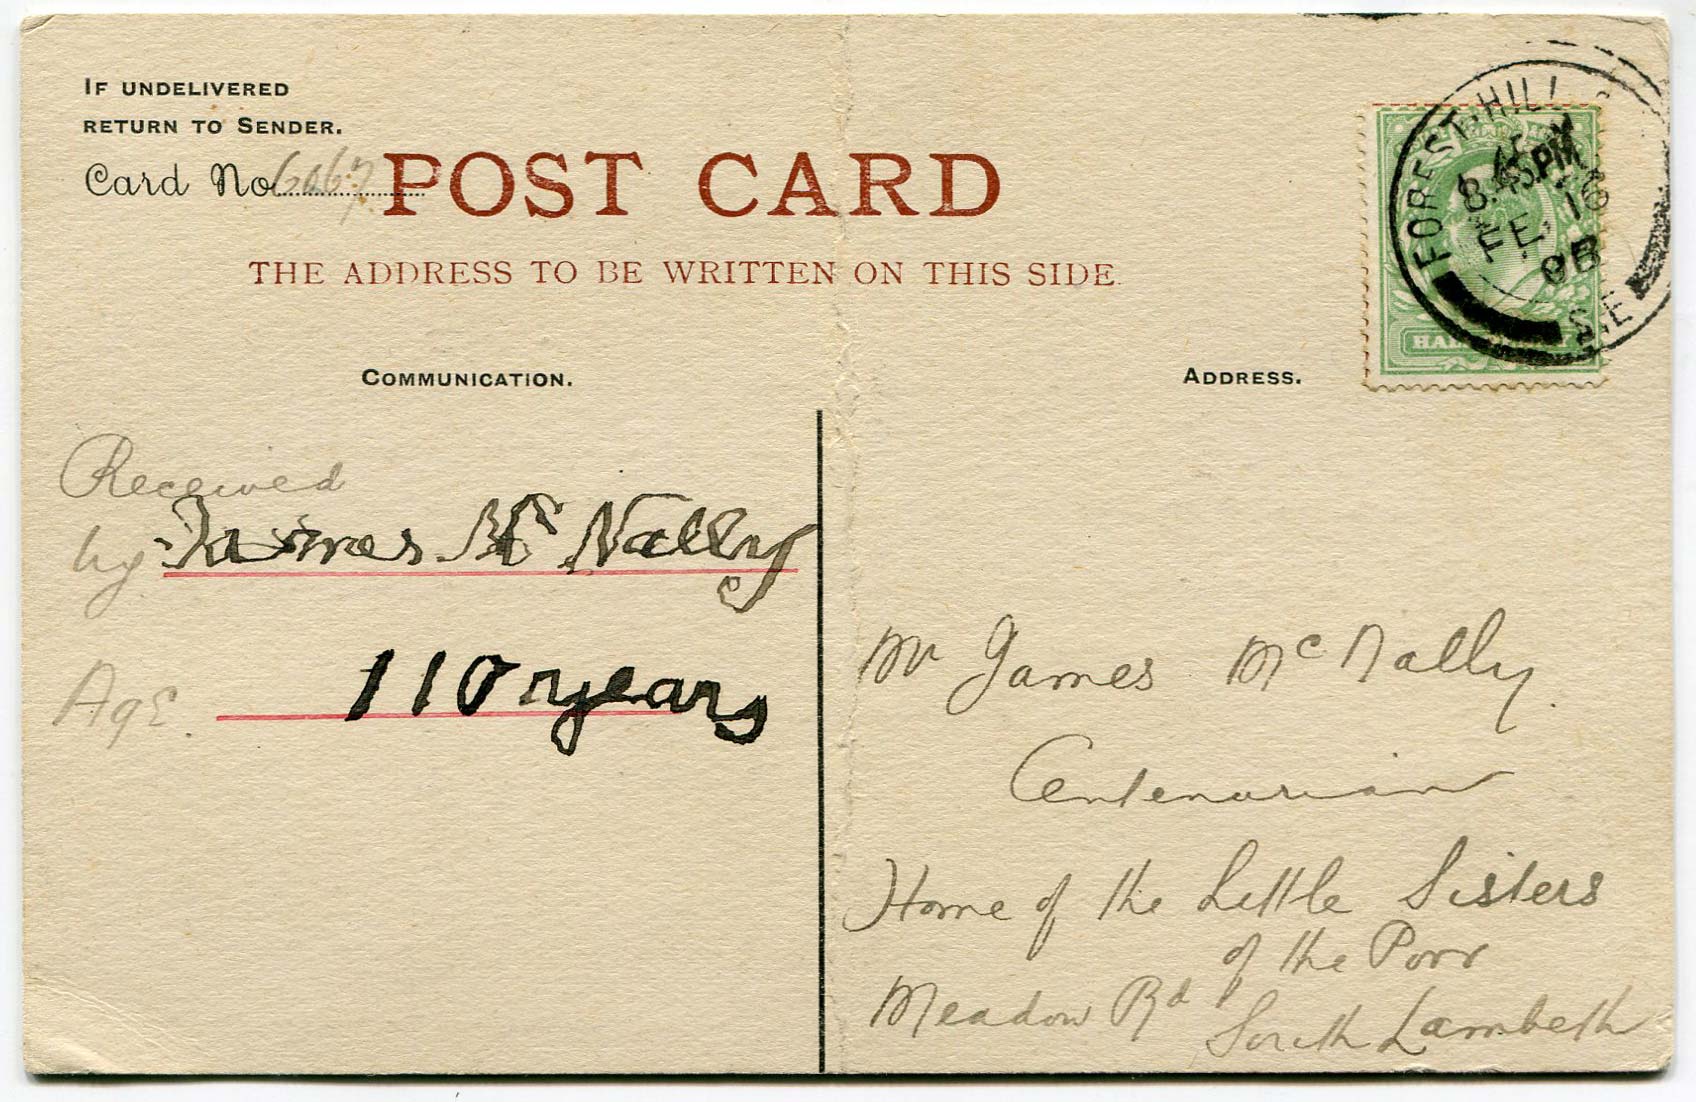 IF UNDELIVERED
RETURN TO SENDER.
Card No 6067
POST CARD
THE ADDRESS TO BE WRITTEN ON THIS SIDE.
COMMUNICATION.
ADDRESS.
FOREST HILL
8.45 PM
FE. 16
08
S.E
HALFPENNY
Received
by James Mc Nally
Age. 110 years
Mr James Mc Nally.
Centenarian
Home of the Little Sisters
of the Poor
Meadow Rd
South Lambeth